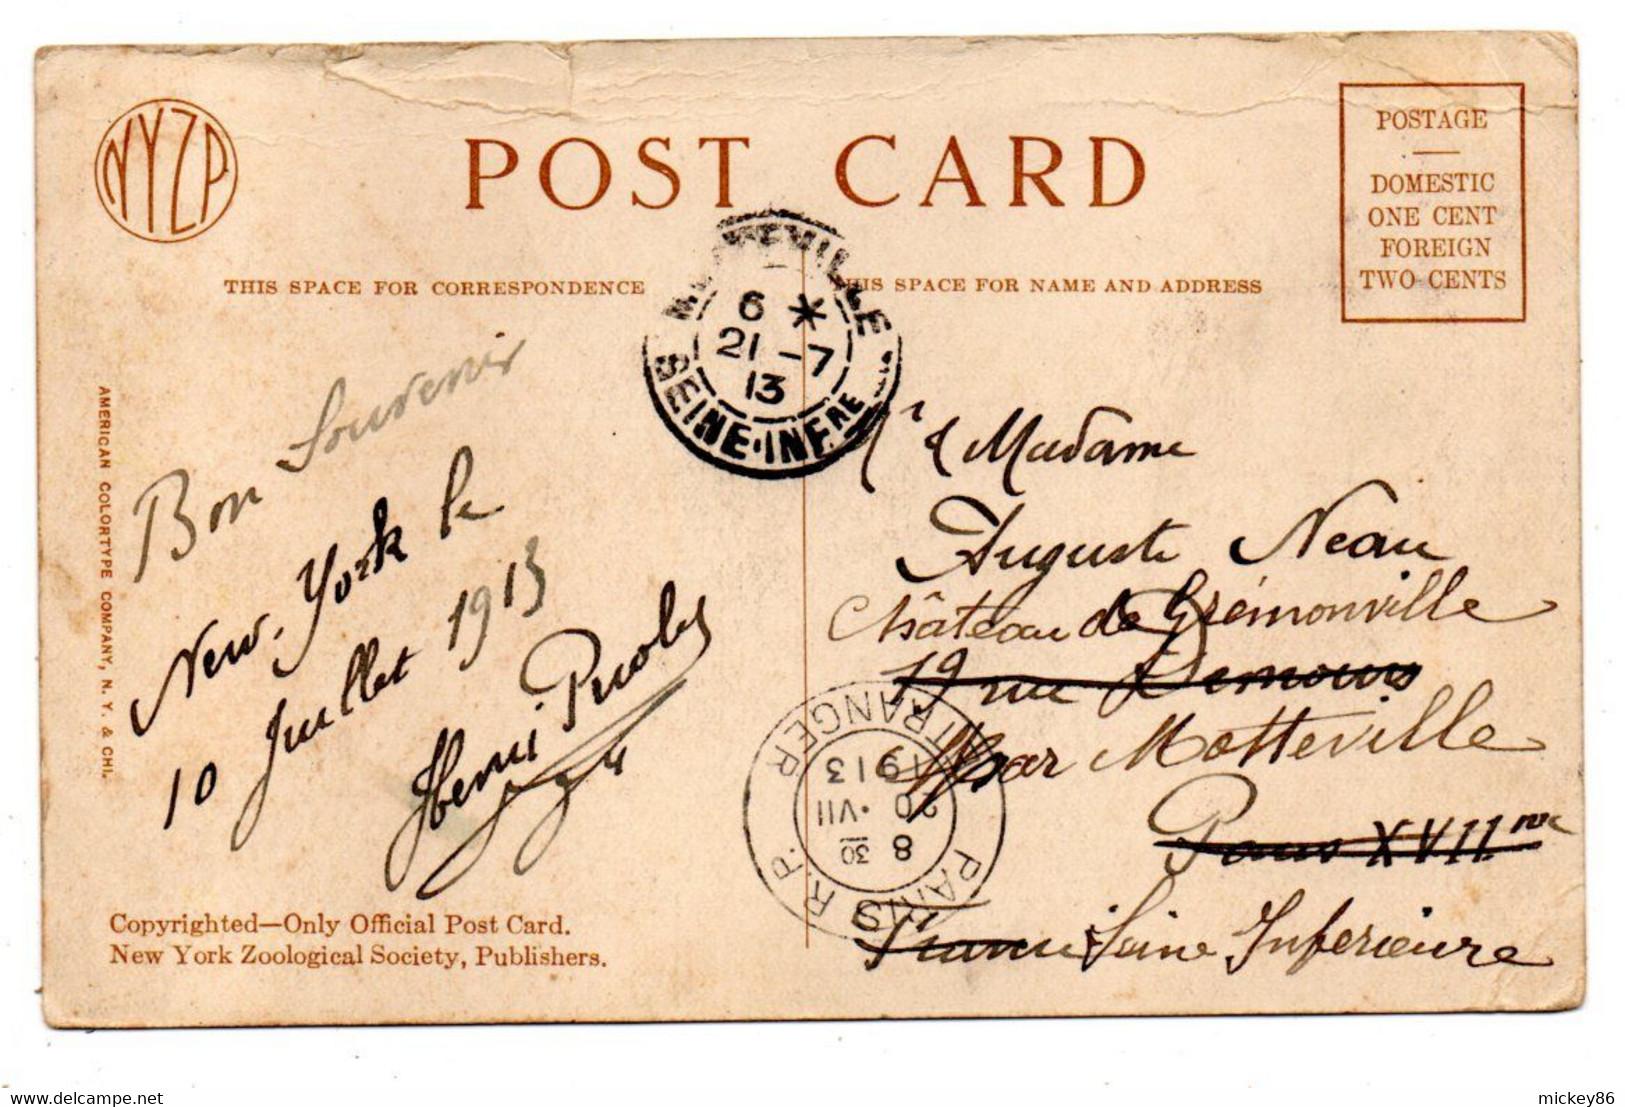 NYZP
POST CARD
POSTAGE
DOMESTIC
ONE CENT
FOREIGN
TWO CENTS
THIS SPACE FOR CORRESPONDENCE
THIS SPACE FOR NAME AND ADDRESS
MOTTEVILLE
6 *
21 - 7
13
SEINE-INFRE
AMERICAN COLORTYPE COMPANY, N. Y. & CHI.
Bon Souvenir
New-York le
10 Juillet 1913
Henri
Mr & Madame
Auguste Neau
Château de Grémonville
19 rue Demours
par Motteville
Paris XVIIme
France Seine Inférieure
PARIS R.P. ETRANGER
8 30
20 · VII
1913
Copyrighted—Only Official Post Card.
New York Zoological Society, Publishers.
mickey86
www.delcampe.net